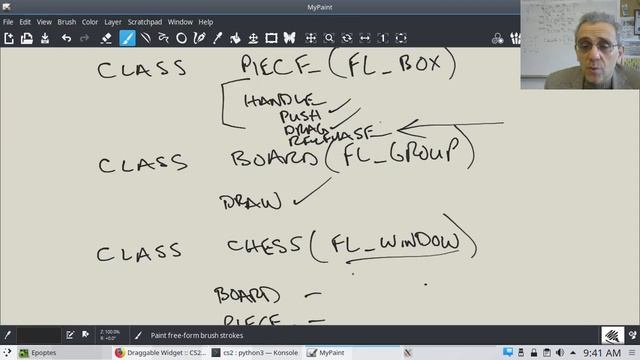 MyPaint
File Edit View Brush Color Layer Scratchpad Window Help
CLASS PIECE (FL_BOX)
HANDLE
PUSH
DRAG
RELEASE
CLASS BOARD (FL_GROUP)
DRAW
CLASS CHESS (FL_WINDOW)
BOARD -
PIECE -
Z: 100.0%
R: +0.0°
Paint free-form brush strokes
Epoptes Draggable Widget :: CS2... cs2 : python3 — Konsole MyPaint 9:41 AM